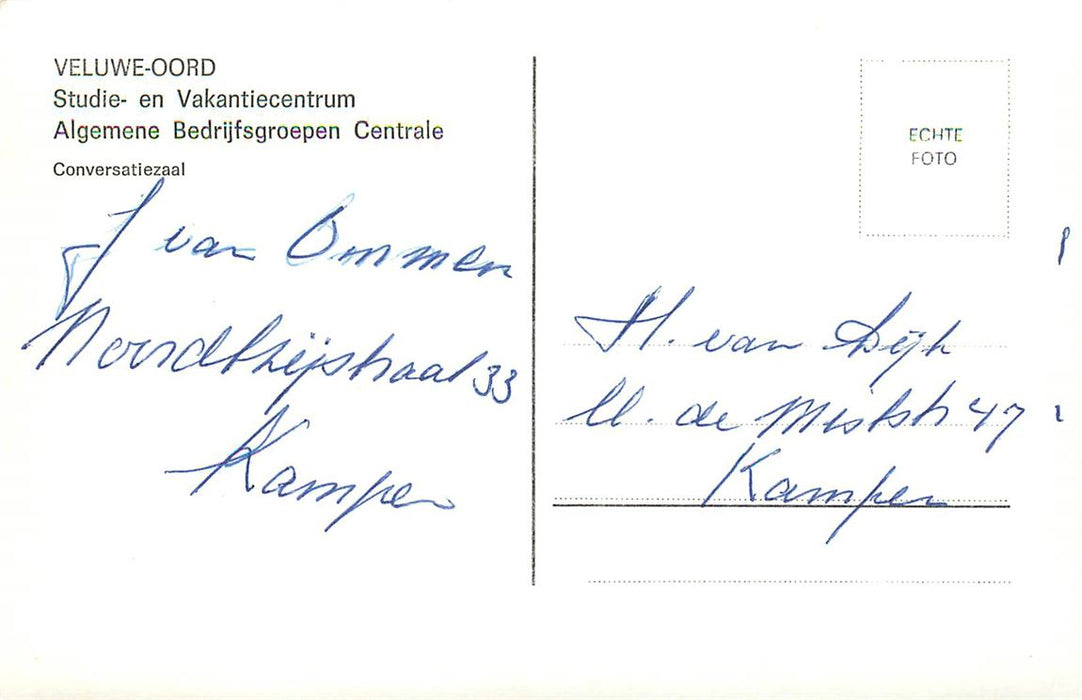 VELUWE-OORD
Studie- en Vakantiecentrum
Algemene Bedrijfsgroepen Centrale
Conversatiezaal
J van Ommen
33
Kampen
ECHTE
FOTO
H. van Dijk
de 47
Kampen